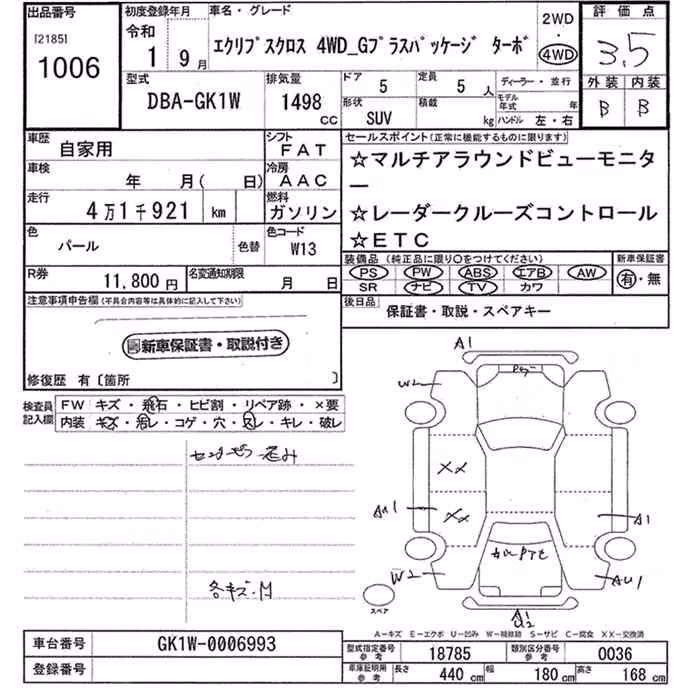 出品番号
[2185]
1006
初度登録年月
令和
1 9月
車名・グレード
エクリプスクロス 4WD_Gプラスパッケージ ターボ
2WD
・
4WD
評価点
3.5
外装 内装
B B
型式
DBA-GK1W
排気量
1498
CC
ドア
5
定員
5 人
形状
SUV
積載
kg
ディーラー・並行
モデル年式 年
ハンドル 左・右
車歴
自家用
シフト
FAT
車検
年 月( 日)
冷房
AAC
走行
4万1千921 km
燃料
ガソリン
色
パール
色替
色コード
W13
R券
11,800円
名変通知期限
月 日
セールスポイント(正常に機能するものに限ります)
☆マルチアラウンドビューモニタ
ー
☆レーダークルーズコントロール
☆ETC
装備品 (純正品に限り○をつけてください)
PS PW ABS エアB AW
SR ナビ TV カワ
新車保証書
有・無
後日品
保証書・取説・スペアキー
注意事項申告欄(不具合内容等は具体的に記入して下さい)
新車保証書・取説付き
修復歴 有〔箇所 〕
検査員
記入欄
FW キズ・飛石・ヒビ割・リペア跡・×要
内装 キズ・汚レ・コゲ・穴・スレ・キレ・破レ
A1
W2
XX
XX
A1
W2
AU1
スペア
A-キズ E-エクボ U-凹み W-補修跡 S-サビ C-腐食 XX-交換済
車台番号
GK1W-0006993
登録番号
型式指定番号
参考
18785
類別区分番号
参考
0036
車庫証明用
参考
長さ
440 cm
幅
180 cm
高さ
168 cm